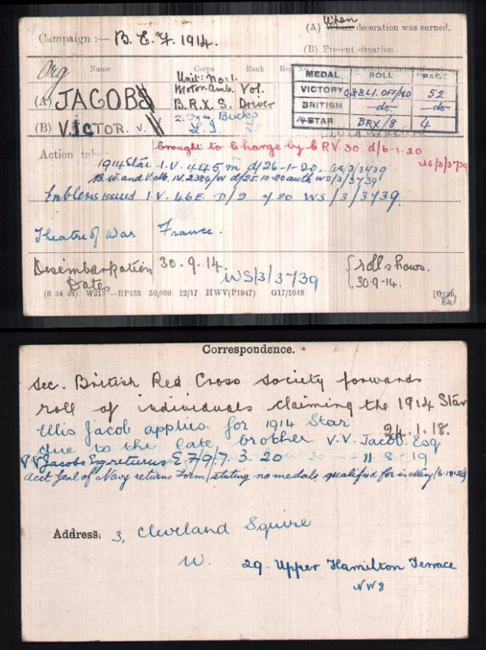 Campaign :— B. E. F. 1914.
(A) Where When decoration was earned.
(B) Present situation
Name Corps Rank
Org
MEDAL ROLL PAGE
VICTORY O.B.B.L.1. OFF/20 52
BRITISH —do— —do—
14 STAR BRX/8 4
Unit: No: 1.
Motor Amb. Vol.
(A) JACOBS B.R.X.S. Driver
2. Oxf Bucks
(B) VICTOR. V. L.I.
Action tak brought to Charge by C.R.V. 30. d/6-1-20 WS/3/3739
1914 Star I.V. 445 m d/26-1-20. WS/3/3739
B.W. and V. do. IV. 2386/W d/25.10.20 auth WS/3/3739
Emblems issued I.V. 46E. D/2 20 WS/3/3739.
Theatre of War France.
Disembarkation 30.9.14. WS/3/3739 {roll shows.
Dates 30-9-14.
(6 34 46) W313—RP433 50,000 12/17 HWV(P1947) G17/1048
Correspondence.
Sec. British Red Cross Society forwards
roll of individuals claiming the 1914 Star
24.1.18.
Miss Jacob applies for 1914 Star
due to the late brother V.V. Jacob. Esq
11-8-19
V V Jacobs Esq returns E 7/9/7. 3. 20
Acct Genl of Navy returns Form/stating no medals qualified for in Navy/6-18-20
Address: 3, Cleveland Square
W. 29. Upper Hamilton Terrace
NW8